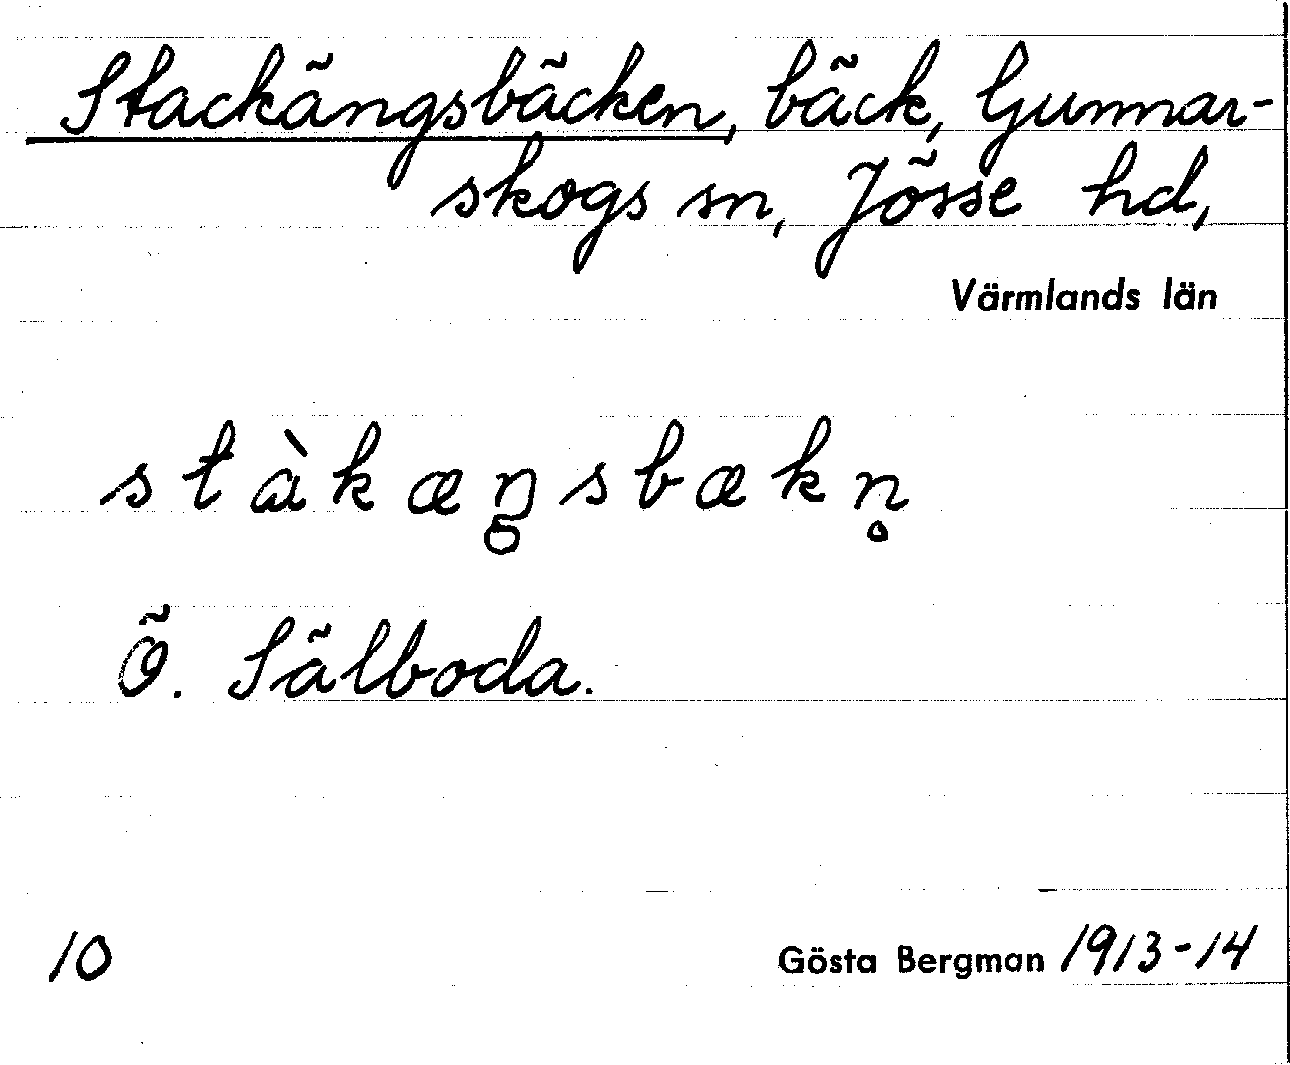 Stackängsbäcken, bäck, Gunnar-
skogs sn, Jösse hd,
Värmlands län
stàkæŋsbækn̥
Ö. Sälboda.
10 Gösta Bergman 1913-14